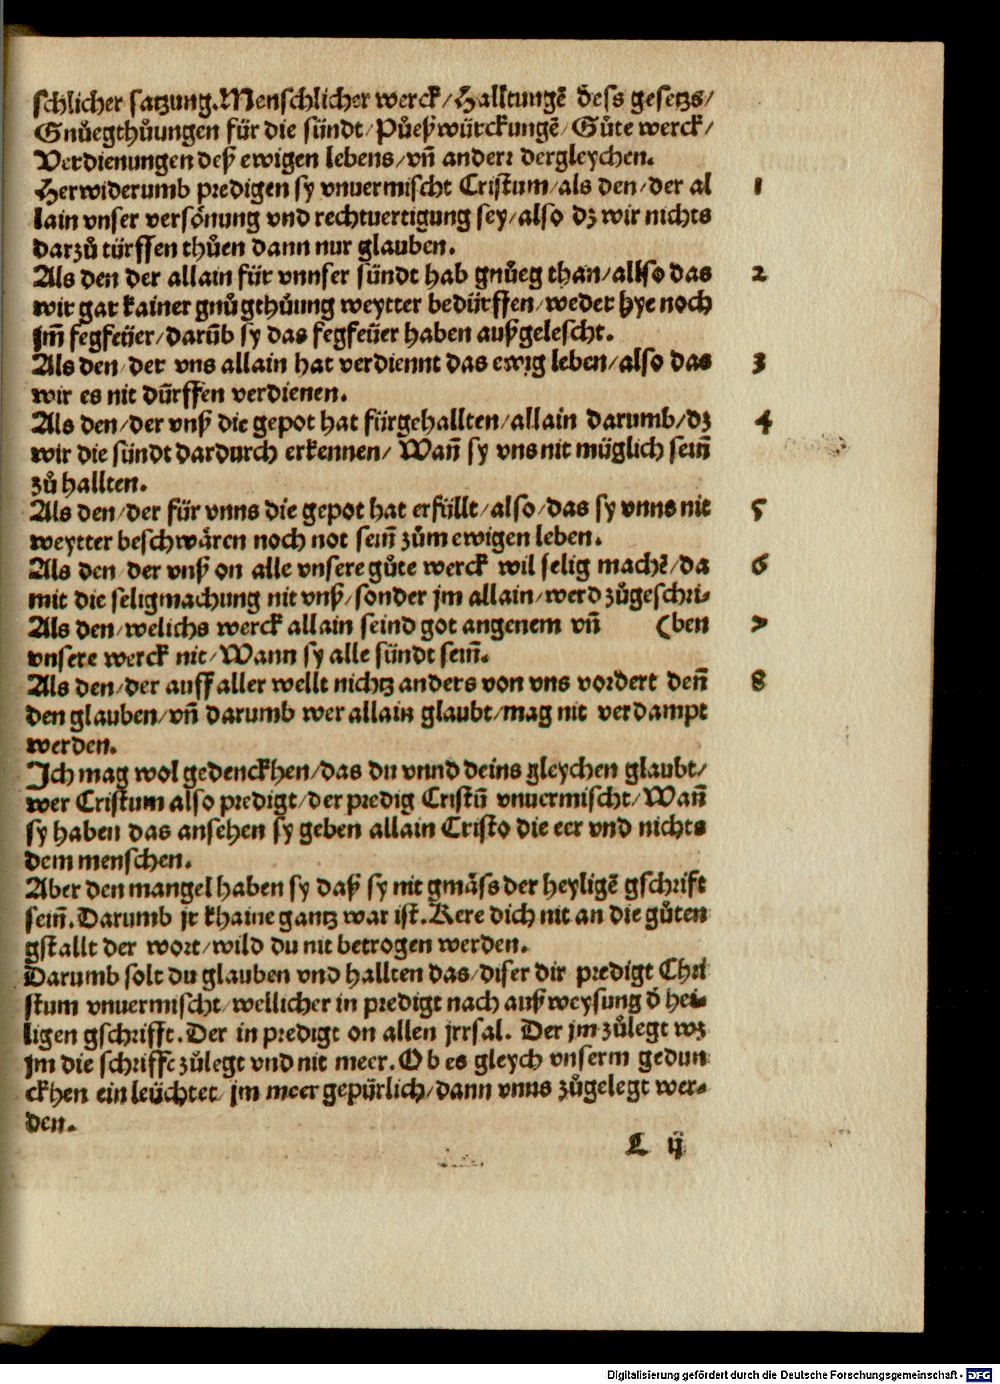 schlicher satzung. Menschlicher werck/Halltungē dess gesetzs/
Gnůegthůungen für die sündt/Půeß würckungē/Gůte werck/
Verdienungen deß ewigen lebens/vñ anderɛ dergleychen.
Herwiderumb predigen sy vnuermischt Cristum/als den/der al 1
lain vnser versönung vnd rechtuertigung sey/also dz wir nichts
darzů türffen thůen dann nur glauben.
Als den der allain für vnnser sündt hab gnůeg than/allso das 2
wir gar kainer gnůgthůung weytter bedürffen/weder hye noch
jm̄ fegfeüer/darūb sy das fegfeüer haben außgelescht.
Als den/der vns allain hat verdiennt das ewig leben/also das 3
wir es nit dürffen verdienen.
Als den/der vnß die gepot hat fürgehallten/allain darumb/dz 4
wir die sündt dardurch erkennen/ Wañ sy vns nit müglich sein̄
zů hallten.
Als den/der für vnns die gepot hat erfüllt/also/das sy vnns nit 5
weytter beschwären noch not sein̄ zům ewigen leben.
Als den der vnß on alle vnsere gůte werck wil selig machē/da 6
mit die seligmachung nit vnß/sonder jm allain/werd zůgeschri-
Als den/welichs werck allain seind got angenem vñ (ben 7
vnsere werck nit/Wann sy alle sündt sein̄.
Als den/der auff aller wellt nichtz anders von vns vordert den̄ 8
den glauben/vñ darumb wer allain glaubt/mag nit verdampt
werden.
Ich mag wol gedenckhen/das du vnnd deins gleychen glaubt/
wer Cristum also predigt/der predig Cristū vnuermischt/Wañ
sy haben das ansehen sy geben allain Cristo die eer vnd nichts
dem menschen.
Aber den mangel haben sy daß sy nit gmäss der heyligē gschrift
sein̄. Darumb jr khaine gantz war ist. Kere dich nit an die gůten
gstallt der wort/wild du nit betrogen werden.
Darumb solt du glauben vnd hallten das/diser dir predigt Chri
stum vnuermischt/wellicher in predigt nach außweysung ď hei-
ligen gschrifft. Der in predigt on allen jrrsal. Der jm zůlegt wz
jm die schrifft zůlegt vnd nit meer. Ob es gleych vnserm gedun
ckhen ein leüchtet/jm meer gepürlich/dann vnns zůgelegt wer-
den.
L ij
Digitalisierung gefördert durch die Deutsche Forschungsgemeinschaft - DFG